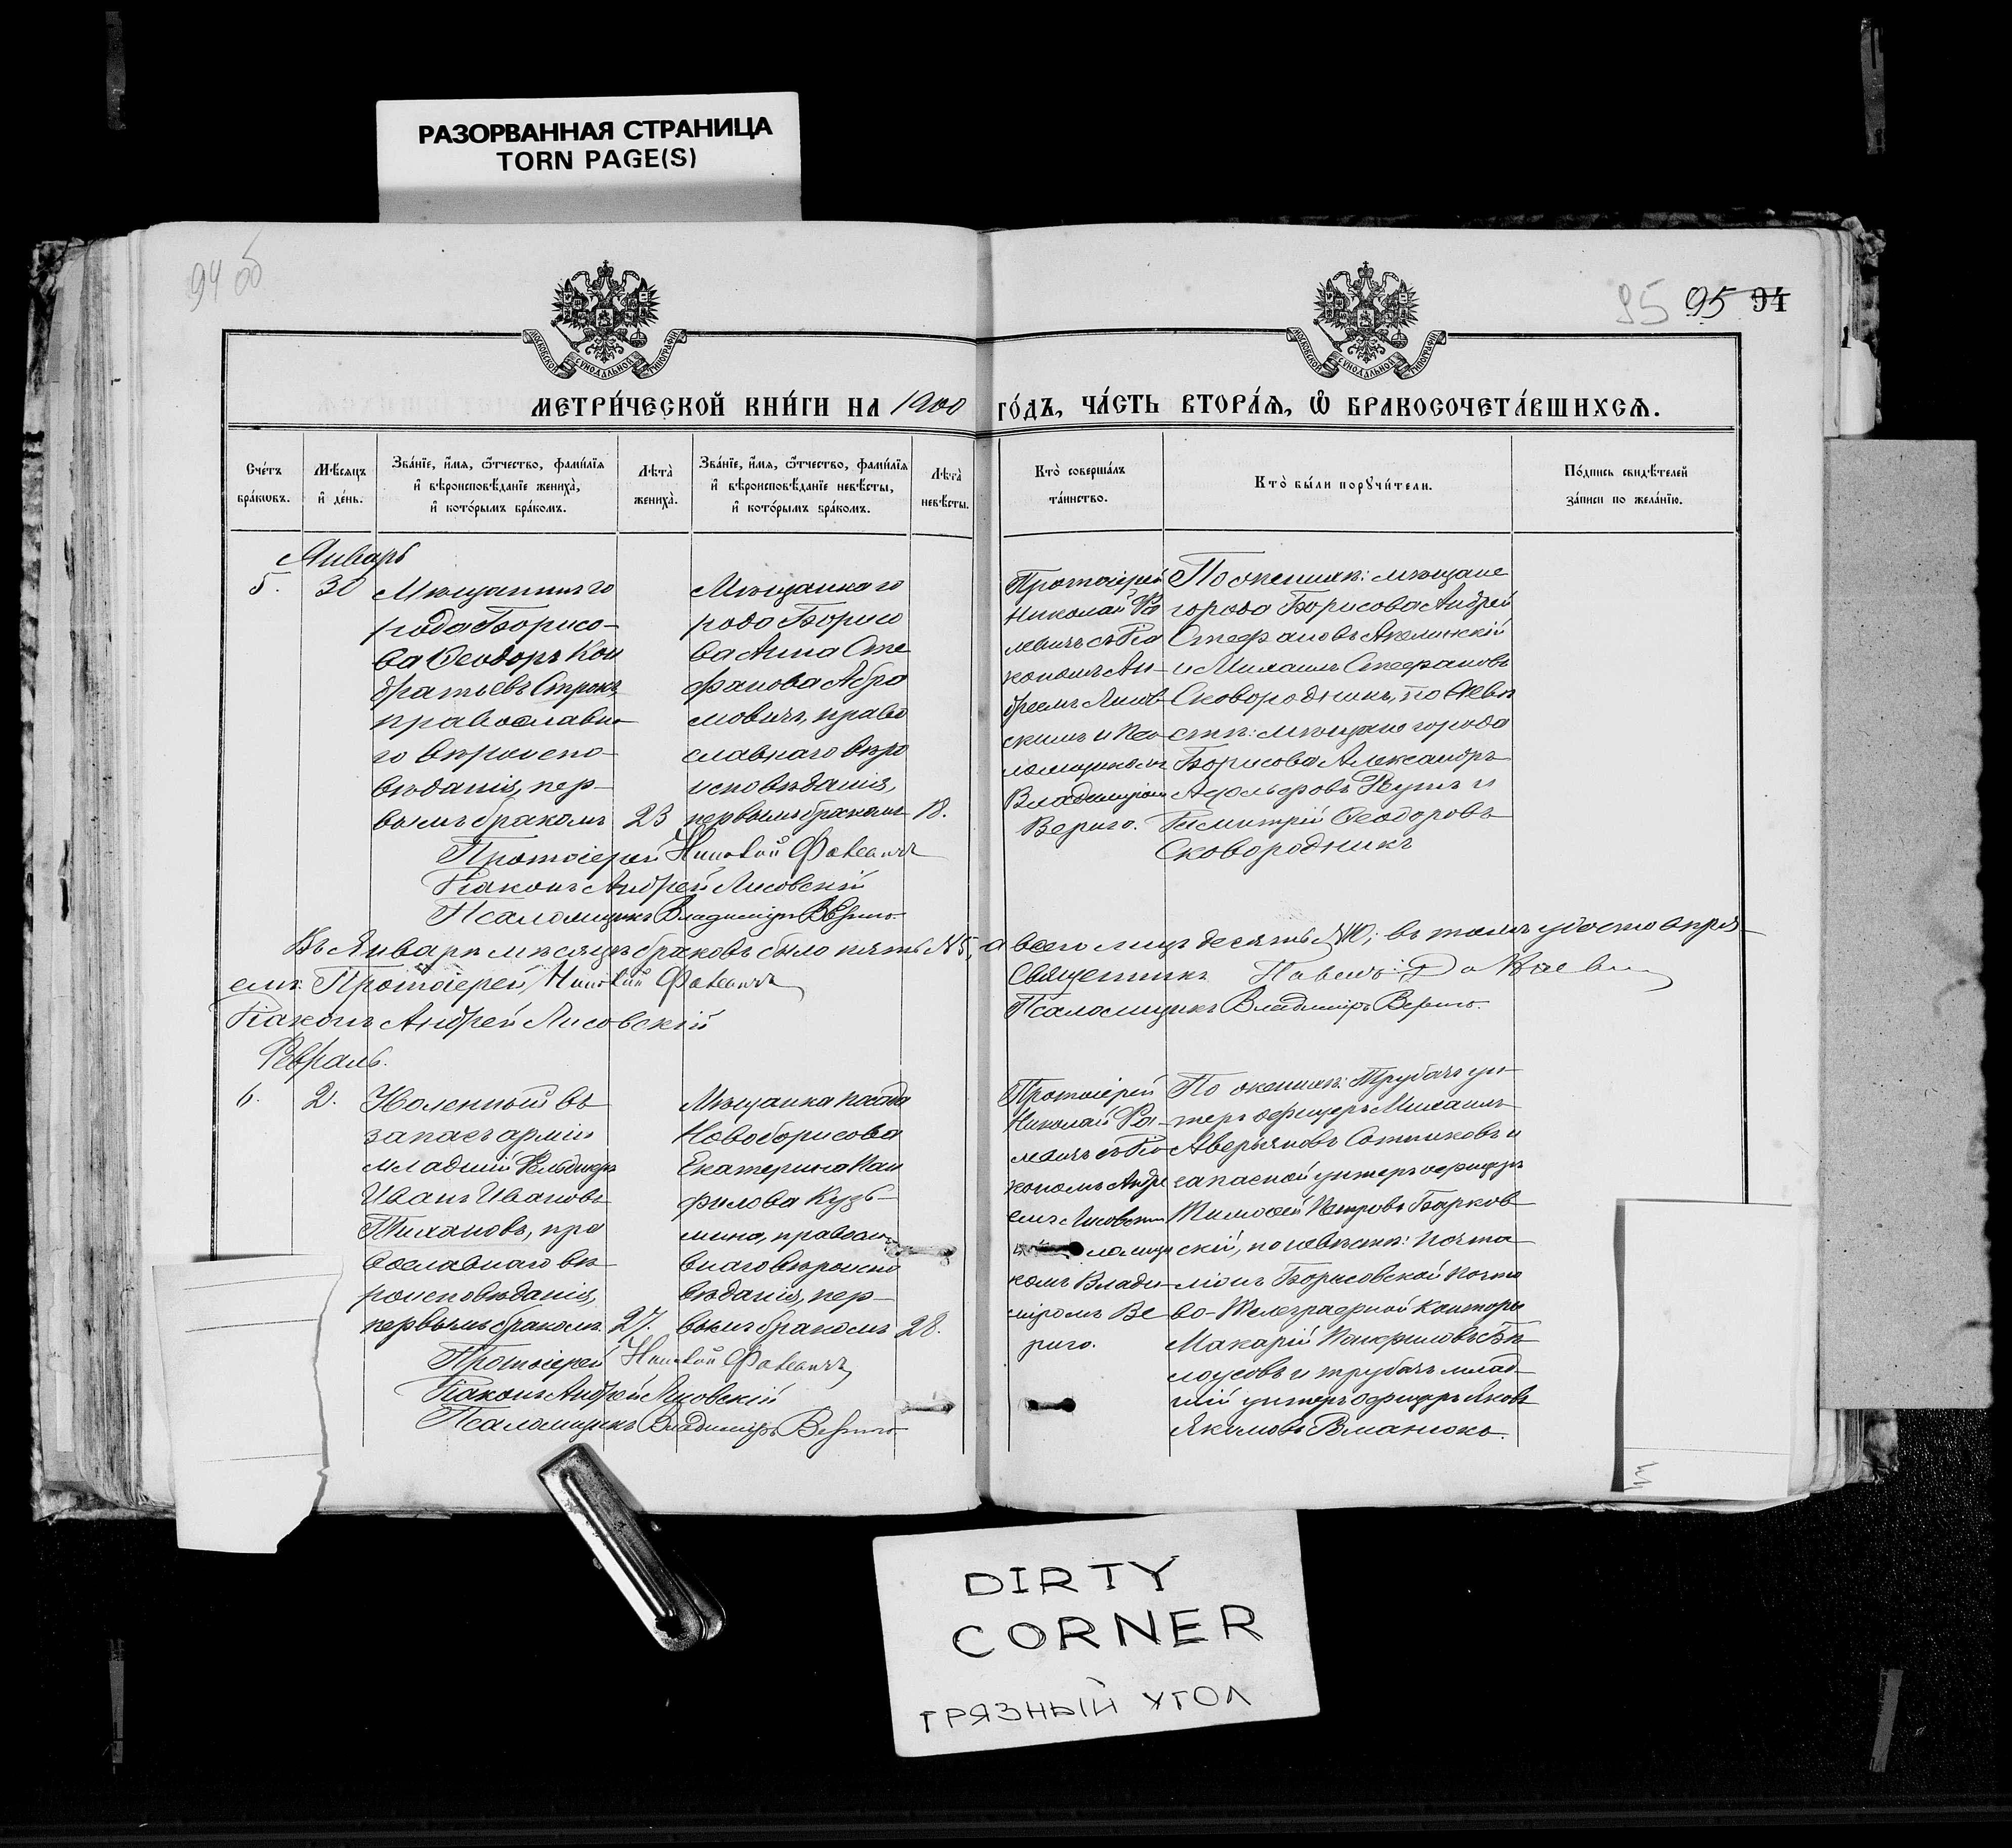 РАЗОРВАННАЯ СТРАНИЦА
TORN PAGE(S)
94 об
95 95 94
МОСКОВСКОЙ СѴНОДАЛЬНОЙ ТИПОГРАФІИ
МОСКОВСКОЙ СѴНОДАЛЬНОЙ ТИПОГРАФІИ
МЕТРИ́ЧЕСКОЙ КНИ́ГИ НА 1900 ГО́ДЪ, ЧА́СТЬ ВТОРА́Я, Ѽ БРАКОСОЧЕТА́ВШИХСЯ.
Сче́тъ бра́кωвъ.
Мѣ́сяцъ и҆ де́нь.
Зва́нїе, и҆́мя, ѻ҆́тчество, фами́лїя и҆ вѣроисповѣ́данїе жениха̀, и҆ кото́рымъ бра́комъ.
Лѣта̀ жениха̀.
Зва́нїе, и҆́мя, ѻ҆́тчество, фами́лїя и҆ вѣроисповѣ́данїе невѣ́сты, и҆ кото́рымъ бра́комъ.
Лѣта̀ невѣ́сты.
Кто̀ соверша́лъ та́инство.
Кто̀ бы́ли порꙋчи́тели.
По́дпись свидѣ́телей за́писи по жела́нїю.
Январь
5.
30
Мѣщанинъ го
рода Борисо-
ва Ѳеодоръ Кон
дратьевъ Строкъ
православна
го вѣроиспо-
вѣданія, пер-
вымъ бракомъ
23
Мѣщанка го
рода Борисо
ва Анна Сте
фанова Абра
мовичъ, право
славнаго вѣро
исповѣданія,
первымъ бракомъ
18.
Протоіерей
Николай Фа
левичъ съ Діа
кономъ Ан-
дреемъ Лисов-
скимъ и Пса-
ломщикомъ
Владиміромъ
Вериго.
По женихѣ: мѣщане
города Борисова Андрей
Стефановъ
и Михаилъ Стефановъ
Сковородникъ, по невѣ
стѣ: мѣщане города
Борисова Александръ
Адольфовъ и
Димитрій Ѳеодоровъ
Сковородникъ
Протоіерей Николай Фалевичъ
Діаконъ Андрей Лисовскій
Псаломщикъ Владиміръ Вериго
Въ Январѣ мѣсяцѣ браковъ было пять №5, а всего лицъ десять №10; въ томъ удостовѣря-
емъ: Протоіерей Николай Фалевичъ
Священникъ Павелъ
Діаконъ Андрей Лисовскій
Псаломщикъ Владиміръ Вериго.
Февраль.
6.
2.
Уволенный въ
запасъ арміи
младшій Фельдшеръ
Иванъ Ивановъ
Тихановъ, пра
вославнаго вѣ-
роисповѣданія,
первымъ бракомъ.
27.
Мѣщанка посада
Новоборисова
Екатерина Пан
филова Кузь-
мина, правосла
внаго вѣроиспо
вѣданія, пер-
вымъ бракомъ
28.
Протоіерей
Николай Фа-
левичъ съ Діа
кономъ Андре
емъ Лисовскимъ
ломщи
комъ Влади-
міромъ Ве
риго.
По женихѣ: Трубачъ ун-
теръ офицеръ Михаилъ
Аверьяновъ Сотниковъ и
запасной унтеръ офицеръ
Тимофей Петровъ Барков-
скій, по невѣстѣ: почта-
ліонъ Борисовской Почто
во-Телеграфной Конторы
Макарій Панфиловъ Бѣ
лоусовъ и трубачъ млад-
шій унтеръ офицеръ Яковъ
Якимовъ Романюкъ.
Протоіерей Николай Фалевичъ
Діаконъ Андрей Лисовскій
Псаломщикъ Владиміръ Вериго
DIRTY
CORNER
ГРЯЗНЫЙ УГОЛ